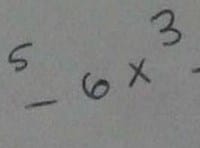 ⁵ - 6x³ -